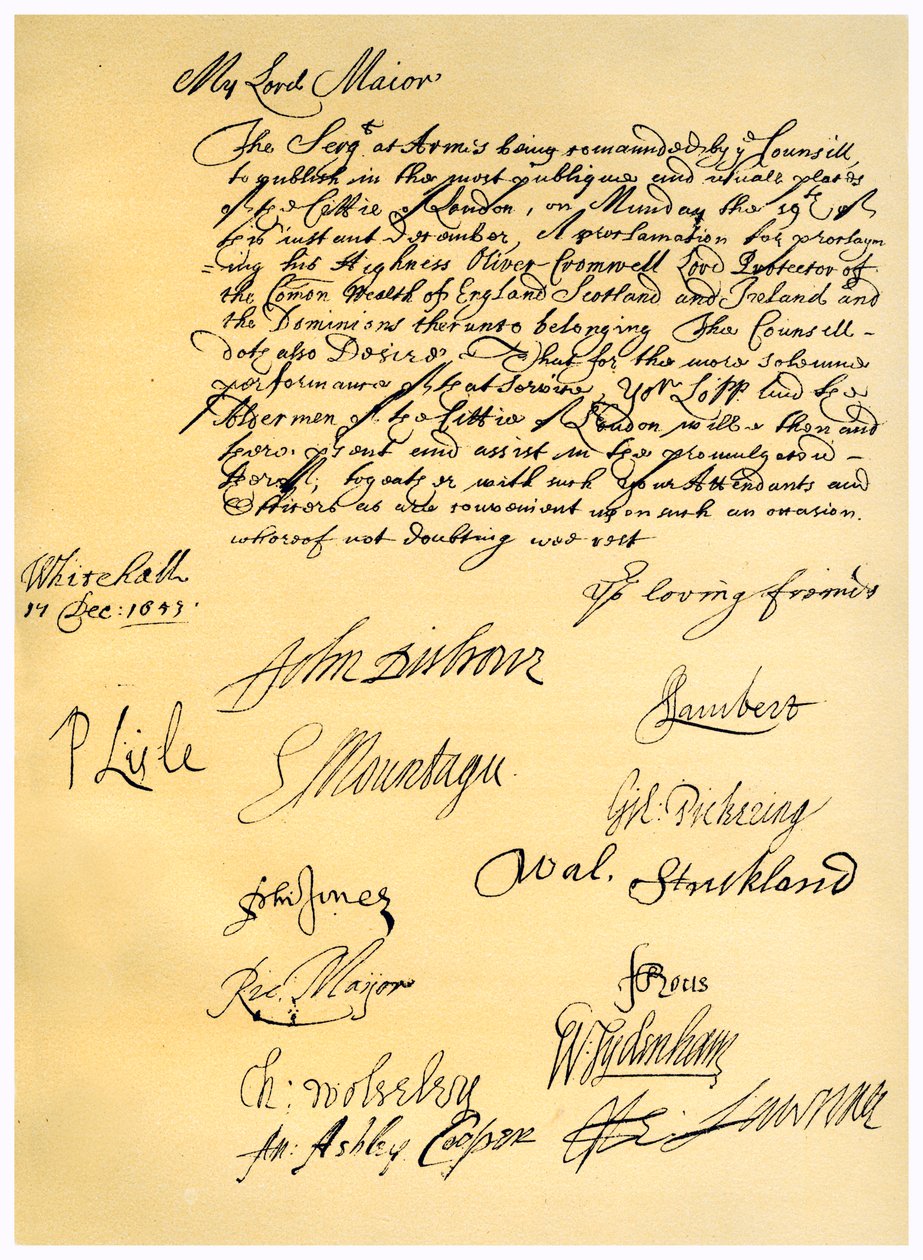 My Lord Maior
The Sergt at Armes being comaunded by ye Counsill,
to publish in the most publique and usuall places
of the Cittie of London, on Munday the 19th of
this instant December, A proclamation for proclaym
=ing his Highness Oliver Cromwell Lord Protector of
the Comon Wealth of England Scotland and Ireland and
the Dominions therunto belonging The Counsill-
doth also Desire, That for the more solemne
performance of that service, Yor Lopp and the
Aldermen of the Cittie of London will be then and
there psent and assist in the
thereof, togeather with such your Attendants and
Officers as are convenient upon such an occasion.
whereof not doubting wee rest
Whitehall
17 Dec: 1653.
Yor loving freinds
John Disbrowe
Lambert
P Lisle
E Mountagu.
Gil: Pickering
Wal. Strickland
Phi Jones
Ric. Maijor
F Rous
W: Sydenham
Ch: Wolseley
An: Ashley Cooper
He: Lawrence